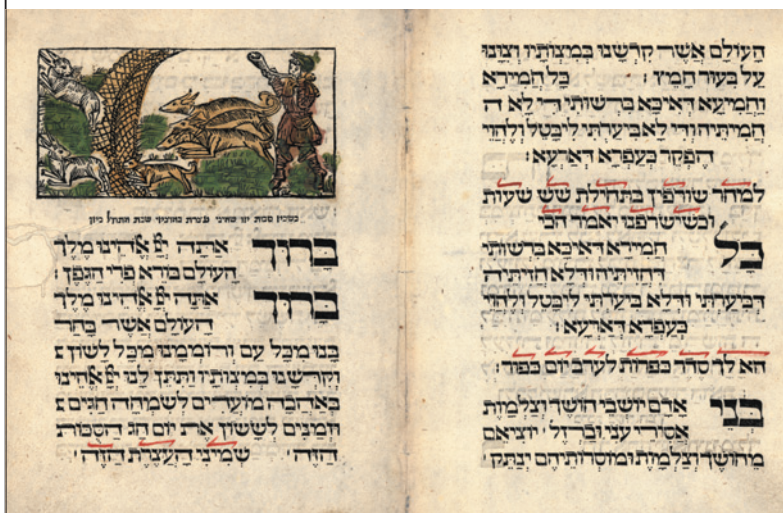 העולם אשר קדשנו במצותיו וצונו
על בעור חמץ : כל חמירא
וחמיעא דאיכא ברשותי די לא ה
חמיתיה ודי לא ביערתי ליבטל ולהוי
הפקר בעפרא דארעא :
למחר שורפין בתחלת שש שעות
ובשישרפנו יאמר הכי
כל חמירא דאיכא ברשותי
דחזיתיה ודלא חזיתיה
דביערתי ודלא ביערתי ליבטל ולהוי
בעפרא דארעא :
הא לך סדר כפרות לערב יום כפור :
בני אדם יושבי חושך וצלמות
אסורי עני וברזל ' יוציאם
מחושך וצלמות ומוסרותיהם ינתק
עצרת שבת
ברוך אתה יי אלהינו מלך
העולם בורא פרי הגפן :
ברוך אתה יי אלהינו מלך
העולם אשר בחר
בנו מכל עם ורוממנו מכל לשון
וקדשנו במצותיו ותתן לנו יי אלהינו
באהבה מועדים לשמחה חגים
וזמנים לששון את יום חג הסכות
הזה ' שמיני העצרת הזה '